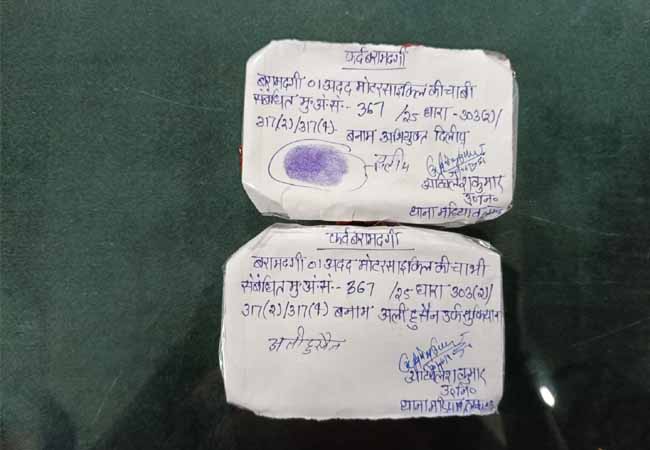 फर्द बरामदगी
बरामदगी 01 अदद मोटरसाइकिल की चाबी
संबंधित मु.अं.सं:- 367 /25 धारा - 303(2)/
317(2)/317(4) बनाम अभियुक्त दिलीप
दिलीप
अखिलेश कुमार
उ0नि0
थाना मडियांव
फर्द बरामदगी
बरामदगी 01 अदद मोटरसाइकिल की चाभी
संबंधित मु.अ.सं:- 367 /25 धारा 303(2)/
317(2)/317(4) बनाम अली हुसैन उर्फ सुफियान
अली हुसैन
अखिलेश कुमार
उ0नि0
थाना